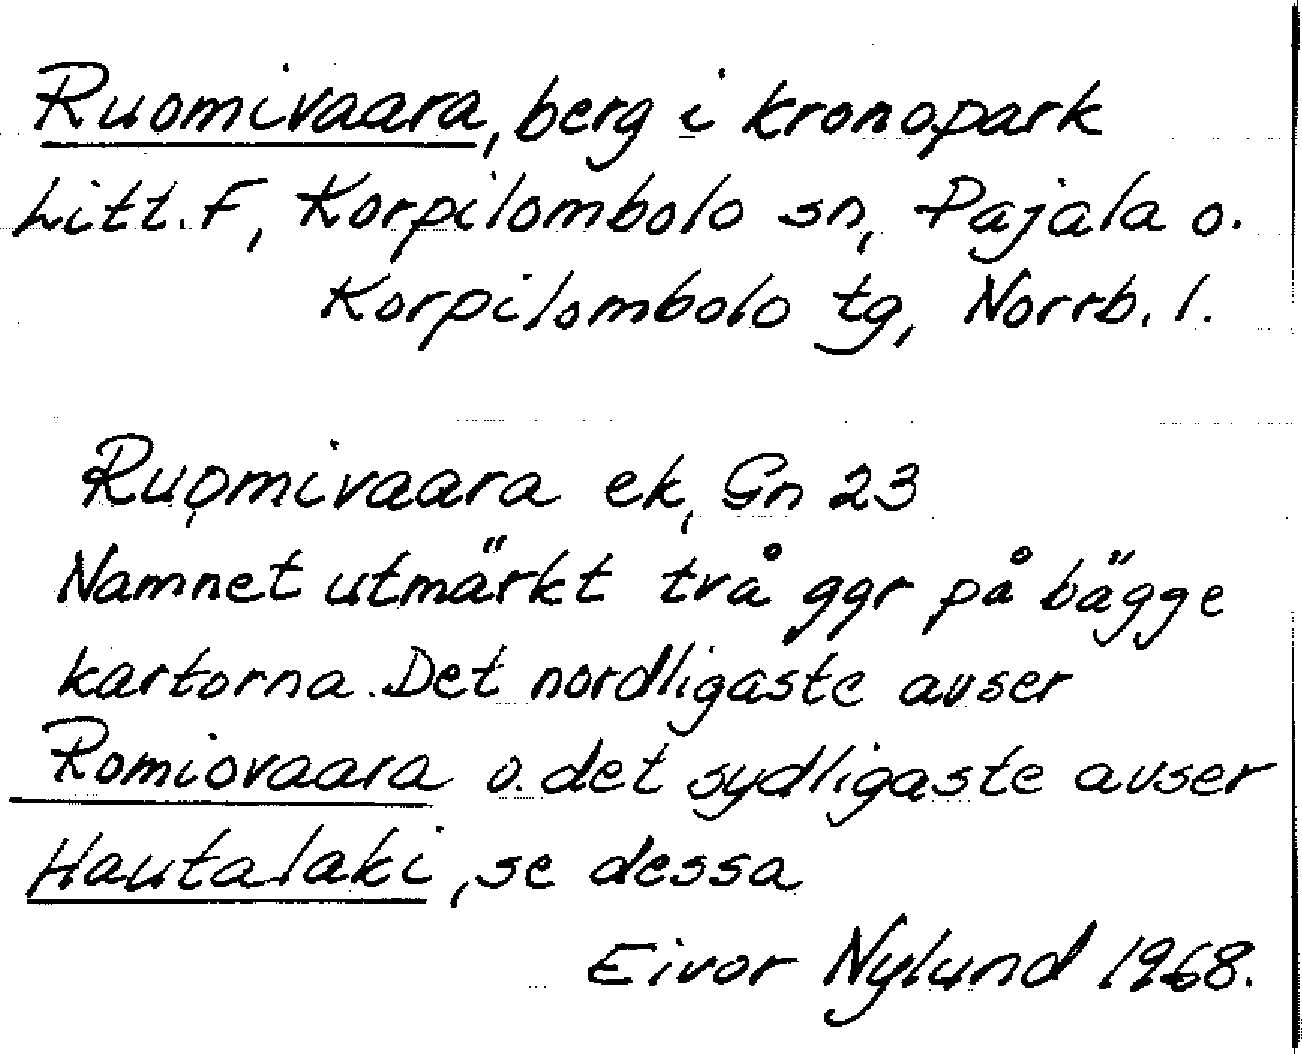 Ruomivaara, berg i kronopark
Litt. F, Korpilombolo sn, Pajala o.
Korpilombolo tg, Norrb. l.
Ruomivaara ek, Gn 23
Namnet utmärkt två ggr på bägge
kartorna. Det nordligaste avser
Romiovaara o. det sydligaste avser
Hautalaki, se dessa
Eivor Nylund 1968.